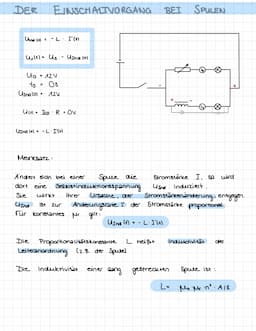 DER EINSCHALTVORGANG BEI SPULEN
Uind(t) = - L · I'(t)
U₀ = 12V
t₀ = 0s
Merksatz:
Ändert sich bei einer Spule die Stromstärke I, so wird
dort eine Selbstinduktionsspannung Uind induziert.
Sie wirkt ihrer Ursache, der Stromstärkeänderung, entgegen.
Uind ist zur Änderungsrate I' der Stromstärke proportional.
Für konstantes μ gilt:
Uind(t) = - L · I'(t)
Die Proportionalitätskonstante L heißt Induktivität der
Leiteranordnung (z.B. der Spule)
Die Induktivität einer lang gestreckten Spule ist: